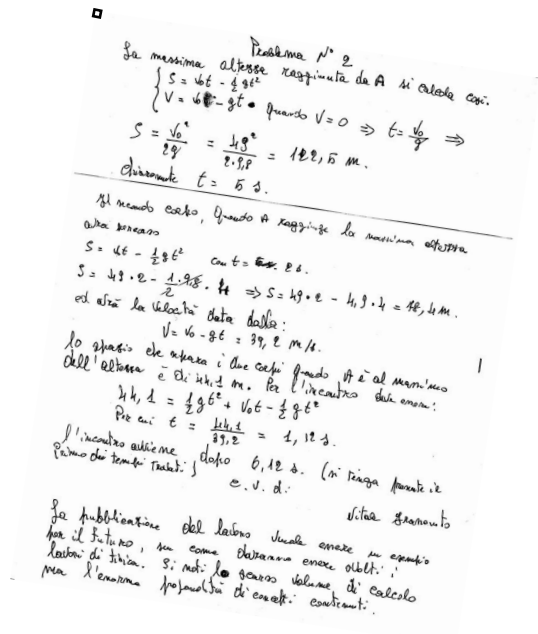 Problema N° 2
La massima altezza raggiunta da A si calcola così.
S = v₀t - ½gt²
V = v₀ - gt. quando V=0 ⇒ t = v₀/g ⇒
S = v₀²/2g = 49²/2·9,8 = 122,5 m.
chiaramente t = 5 s.
Il secondo corpo, quando A raggiunge la massima altezza
avrà percorso
S = v₀t - ½gt² con t = 2s.
S = 49·2 - 1·9,8/2·4 ⇒ S = 49·2 - 4,9·4 = 78,4 m.
ed avrà la velocità data dalla:
V = v₀ - gt = 39,2 m/s.
lo spazio che separa i due corpi quando A è al massimo
dell'altezza è di 44,1 m. Per l'incontro deve essere:
44,1 = ½gt² + v₀t - ½gt²
Per cui t = 44,1/39,2 = 1,12 s.
l'incontro avviene dopo 6,12 s. (si tenga presente il
primo dei tempi trovati)
c.v.d.
Vitale
La pubblicazione del lavoro vuole essere un esempio
per il futuro, su come dovranno essere svolti i
lavori di fisica. Si noti lo scarso volume di calcolo
ma l'enorme profondità di concetti contenuti.